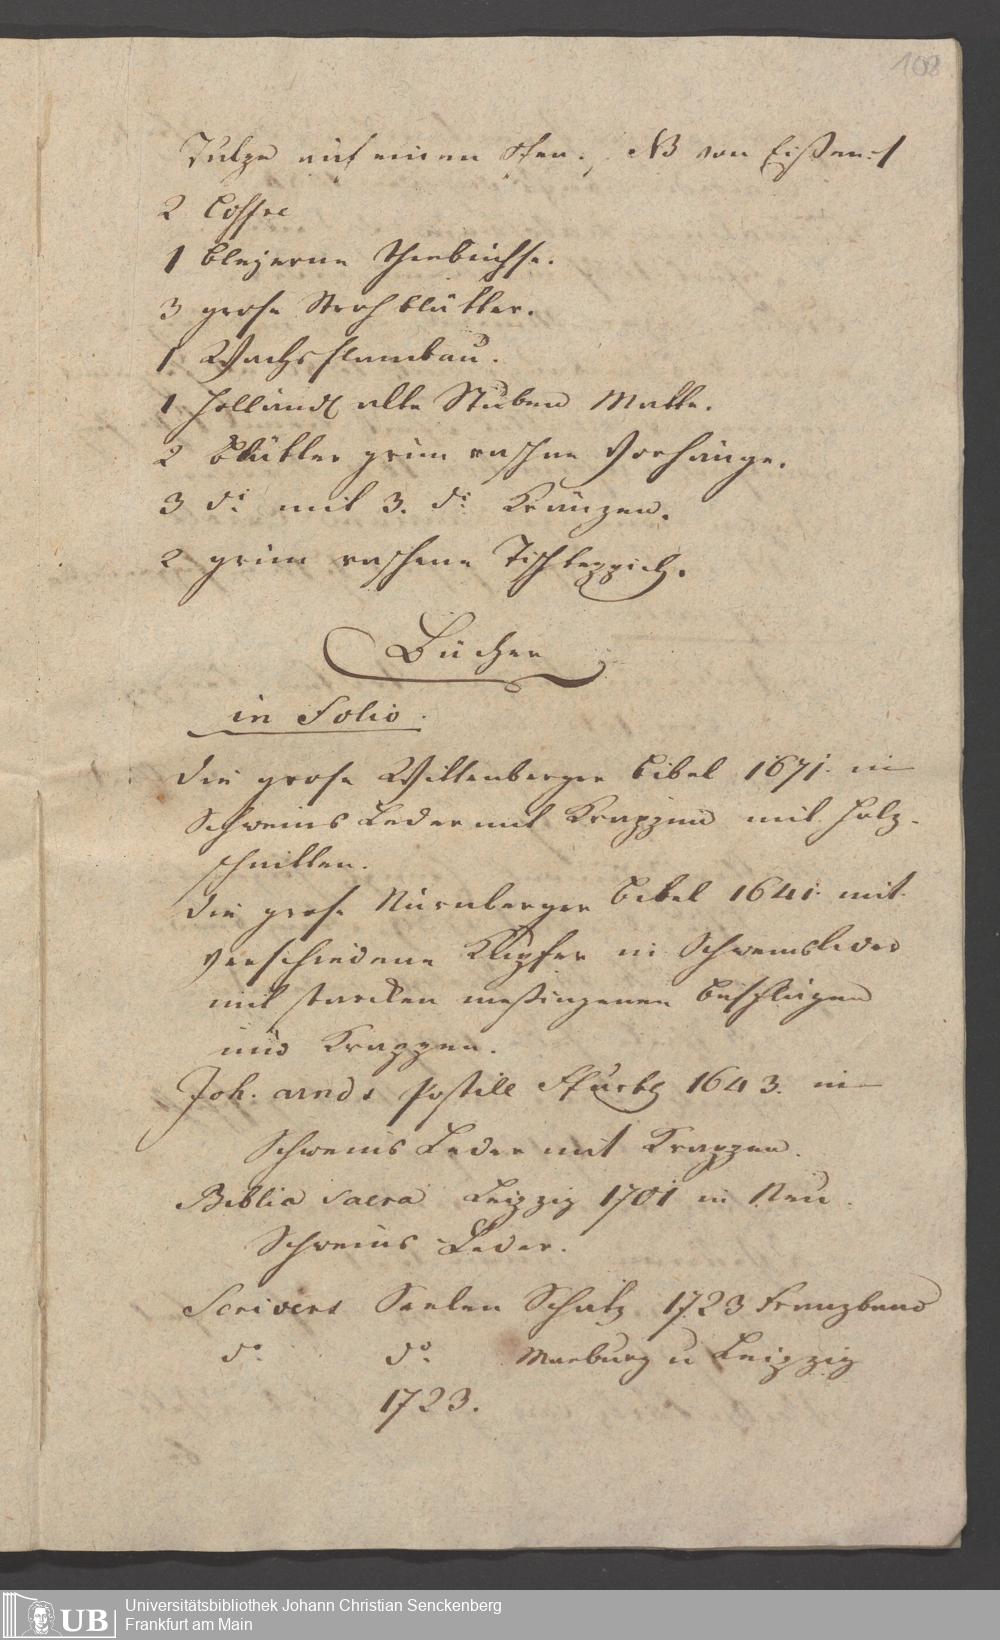 108
Tulpe auf einen Ofen. NB von Eißen :/
2 Coffre
1 bleyerne Theebüchse.
3 grose Strohblätter.
1 Wachsflambau.
1 Holländ alte Stuben Matte.
2 Blätter grün raschne Vorhänge.
3 do: mit 3. do: Kränzen.
2 grün raschene Tischteppich.
Bücher
in Folio.
Die grose Wittenberger Bibel 1671. in
Schweins Leder mit Krappen mit Holz-
schnitten.
Die grose Nürnberger Bibel 1641. mit
verschiedene Kupfer in Schweinsleder
mit starcken meßingenen Beschlägen
und Krappen.
Joh. arnds Postill Ffurth 1643. in
Schweins Leder mit Krappen.
Biblia Sacra Leipzig 1701 in Neu
Schweins Leder.
Scrivers Seelen Schatz 1723 Franzband
do. do. Marburg u Leipzig
1723.
UB
Universitätsbibliothek Johann Christian Senckenberg
Frankfurt am Main